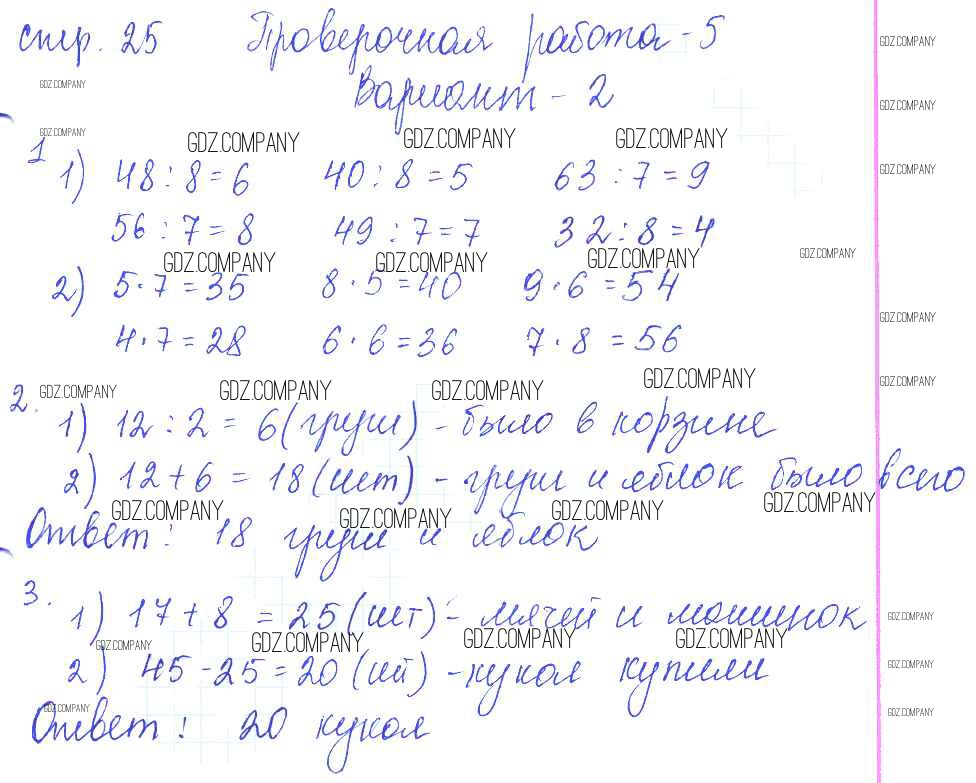 стр. 25 Проверочная работа - 5
GDZ.COMPANY
Вариант - 2
GDZ.COMPANY
GDZ.COMPANY
GDZ.COMPANY
GDZ.COMPANY GDZ.COMPANY GDZ.COMPANY
1
1) 48 : 8 = 6 40 : 8 = 5 63 : 7 = 9
GDZ.COMPANY
56 : 7 = 8 49 : 7 = 7 32 : 8 = 4
GDZ.COMPANY GDZ.COMPANY GDZ.COMPANY GDZ.COMPANY
2) 5 · 7 = 35 8 · 5 = 40 9 · 6 = 54
GDZ.COMPANY
4 · 7 = 28 6 · 6 = 36 7 · 8 = 56
GDZ.COMPANY GDZ.COMPANY GDZ.COMPANY GDZ.COMPANY GDZ.COMPANY
2.
1) 12 : 2 = 6 (груш) - было в корзине
2) 12 + 6 = 18 (шт) - груш и яблок было всего
GDZ.COMPANY GDZ.COMPANY GDZ.COMPANY GDZ.COMPANY
Ответ: 18 груш и яблок
3.
1) 17 + 8 = 25 (шт) - мячей и машинок
GDZ.COMPANY
GDZ.COMPANY GDZ.COMPANY GDZ.COMPANY GDZ.COMPANY
2) 45 - 25 = 20 (шт) - кукол купили
GDZ.COMPANY
GDZ.COMPANY GDZ.COMPANY
Ответ: 20 кукол